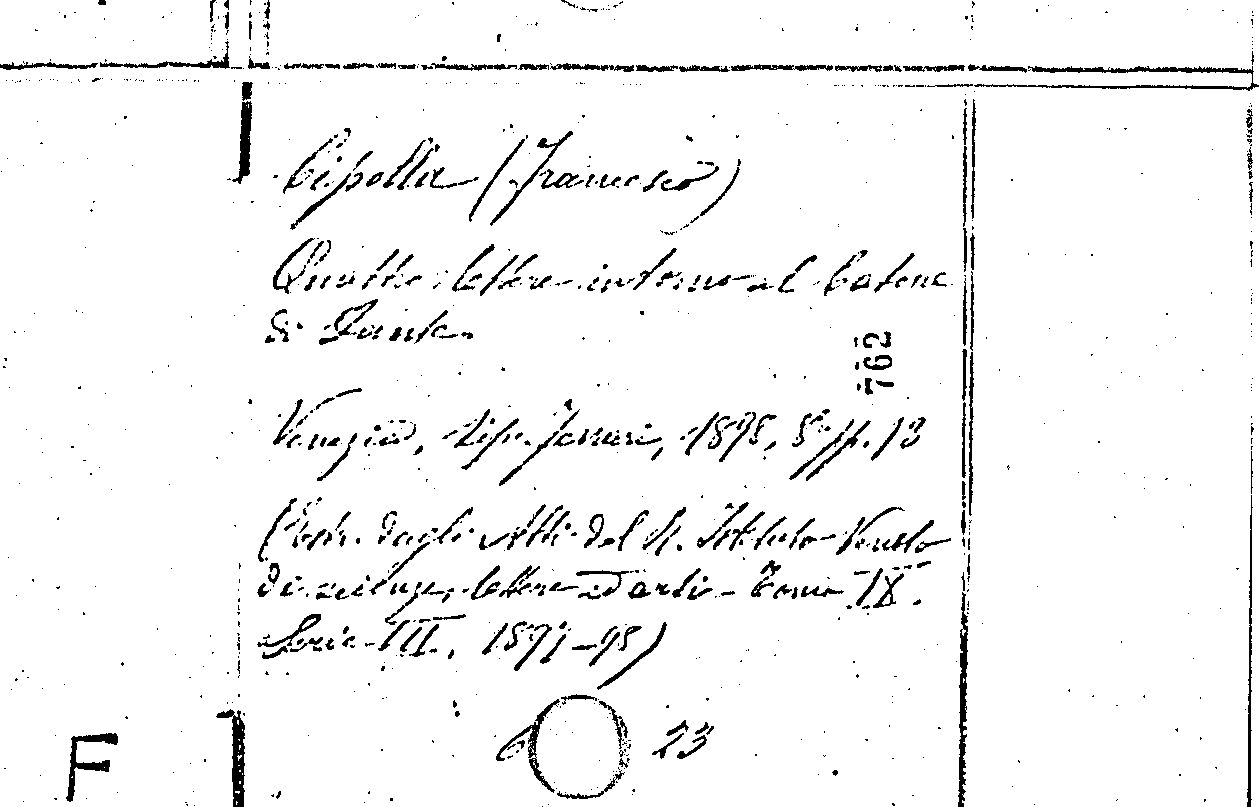 Cipolla (Francesco)
Quattro lettere intorno al Catone
di Dante.
762
Venezia, tip. Ferrari, 1898, 8° pp. 13
(Estr. dagli Atti del R. Istituto Veneto
di scienze, lettere ed arti - Tomo IX.
Serie VII. 1897-98)
6 23
F